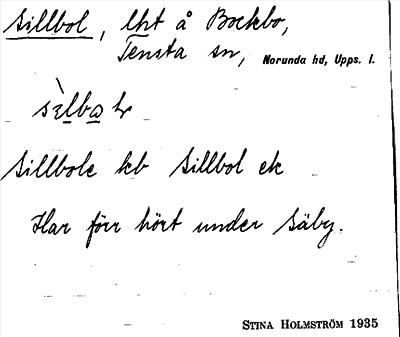 Sillbol, lht å Bockbo,
Tensta sn, Norunda hd, Upps. l.
sìlbo lr
Sillbole kb Sillbol ek
Har förr hört under Säby.
STINA HOLMSTRÖM 1935